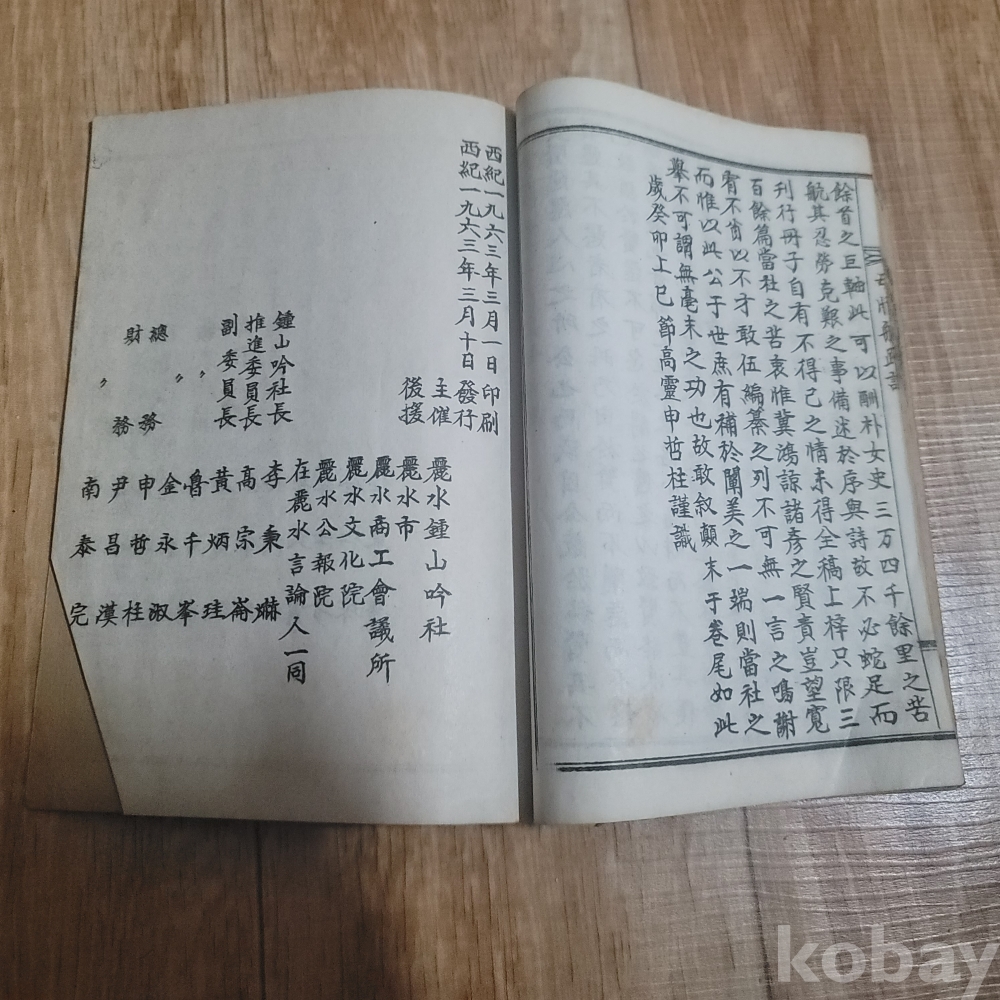 餘首之巨軸此可以酬朴女史三万四千餘里之苦
航其忍勞克艱之事備述於序與詩故不必蛇足而
刊行冊子自有不得已之情未得全稿上梓只限三
百餘篇當社之苦衷惟冀鴻諒諸彥之賢責豈望寬
宥不侫以不才敢伍編纂之列不可無一言之鳴謝
而惟以此公于世庶有補於闡美之一端則當社之
舉不可謂無毫末之功也故敢叙顛末于卷尾如此
歲癸卯上巳節高靈申哲柱謹識
西紀一九六三年三月一日印刷
西紀一九六三年三月十日發行
主催 麗水鍾山吟社
後援 麗水市
麗水商工會議所
麗水文化院
麗水公報院
在麗水言論人一同
鍾山吟社長 李秉
推進委員長 高宗崙
副委員長 黃炳珪
〃 魯千峯
總務 金永淑
〃 申哲柱
財務 尹昌漢
〃 南泰完
kobay